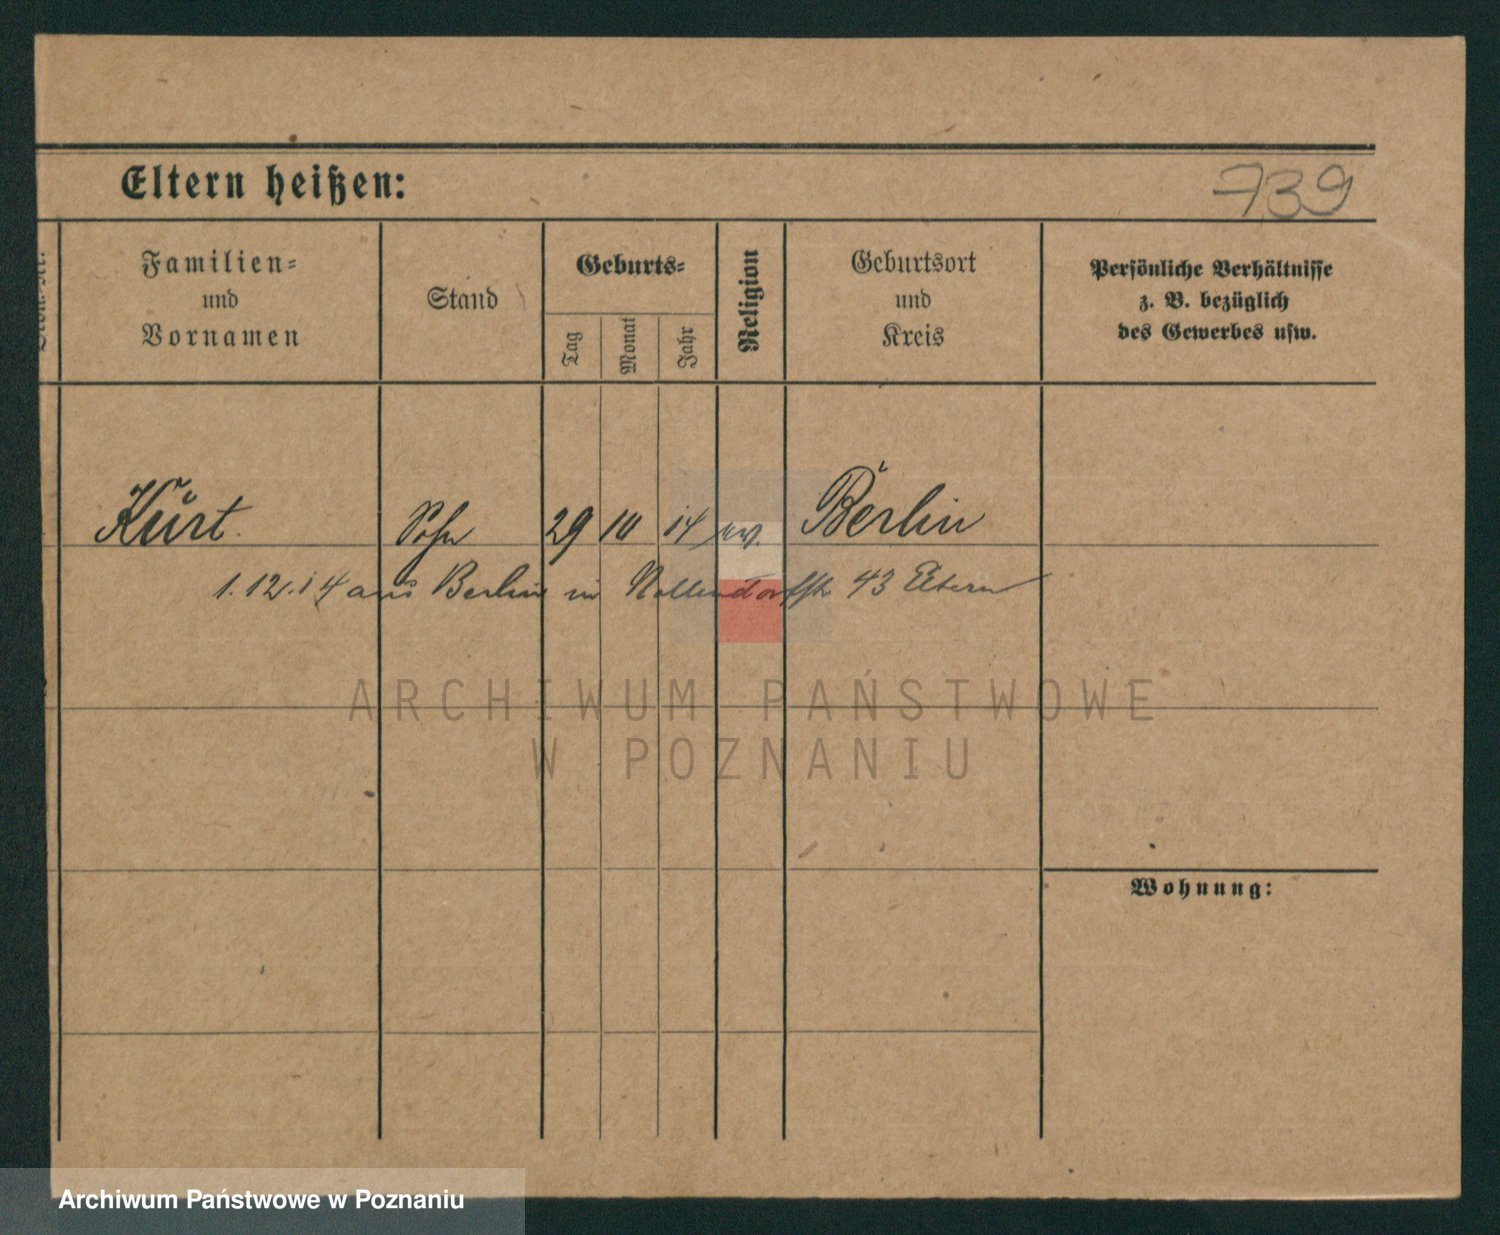 Eltern heißen:
739
Familien-
und
Vornamen
Stand
Geburts-
Tag
Monat
Jahr
Religion
Geburtsort
und
Kreis
Persönliche Verhältnisse
z. B. bezüglich
des Gewerbes usw.
Kurt Sohn 29 10 14 ev. Berlin
1.12.14 aus Berlin in Nollendorfstr 43 Eltern
ARCHIWUM PAŃSTWOWE
W POZNANIU
Wohnung:
Archiwum Państwowe w Poznaniu